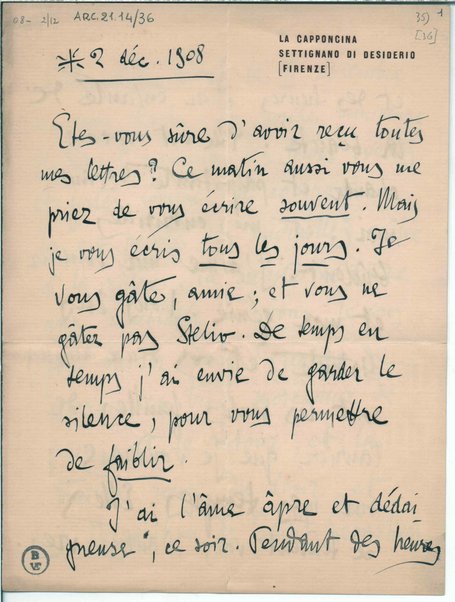 08- 2/12 ARC.21.14/36
35) 1
[36]
LA CAPPONCINA
SETTIGNANO DI DESIDERIO
[FIRENZE]
2 déc. 1908
Etes-vous sûre d'avoir reçu toutes
mes lettres? Ce matin aussi vous me
priez de vous écrire souvent. Mais
je vous écris tous les jours. Je
vous gâte, amie; et vous ne
gâtez pas Stelio. De temps en
temps j'ai envie de garder le
silence, pour vous permettre
de faiblir.
J'ai l'âme âpre et dédai
gneuse, ce soir. Pendant des heures